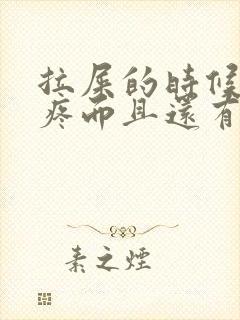 拉屎的時候
疼而且還有
素之煙